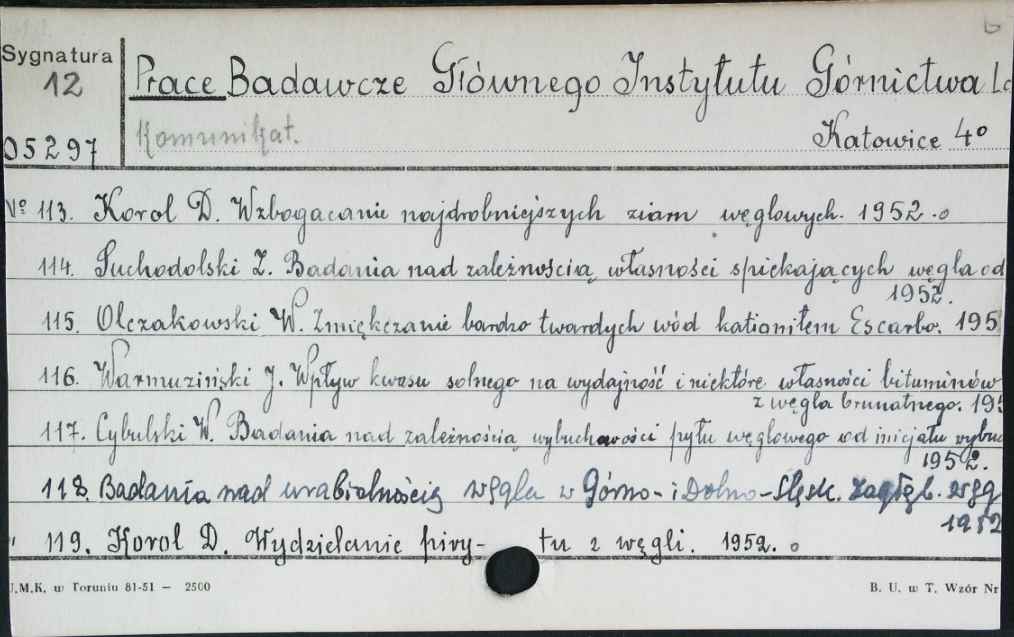 Sygnatura
12
05297
6
Prace Badawcze Głównego Instytutu Górnictwa
Komunikat. Katowice 4º
Nº 113. Korol D. Wzbogacanie najdrobniejszych ziarn węglowych. 1952.
114. Suchodolski Z. Badania nad zależnością własności spiekających węgla od
1952.
115. Olczakowski W. Zmiękczanie bardzo twardych wód kationitem Escarbo. 195
116. Warmuziński J. Wpływ kwasu solnego na wydajność i niektóre własności bituminów
z węgla brunatnego. 195
117. Cybulski W. Badania nad zależnością wybuchowości pyłu węglowego od inicjału wybuc
1952.
118. Badania nad urabialnością węgla w Górno- i Dolno-Śląsk. Zagłęb. Węg
1952
" 119. Korol D. Wydzielanie piry- tu z węgli. 1952.
J.M.K. w Toruniu 81-51 — 2500 B. U. w T. Wzór Nr